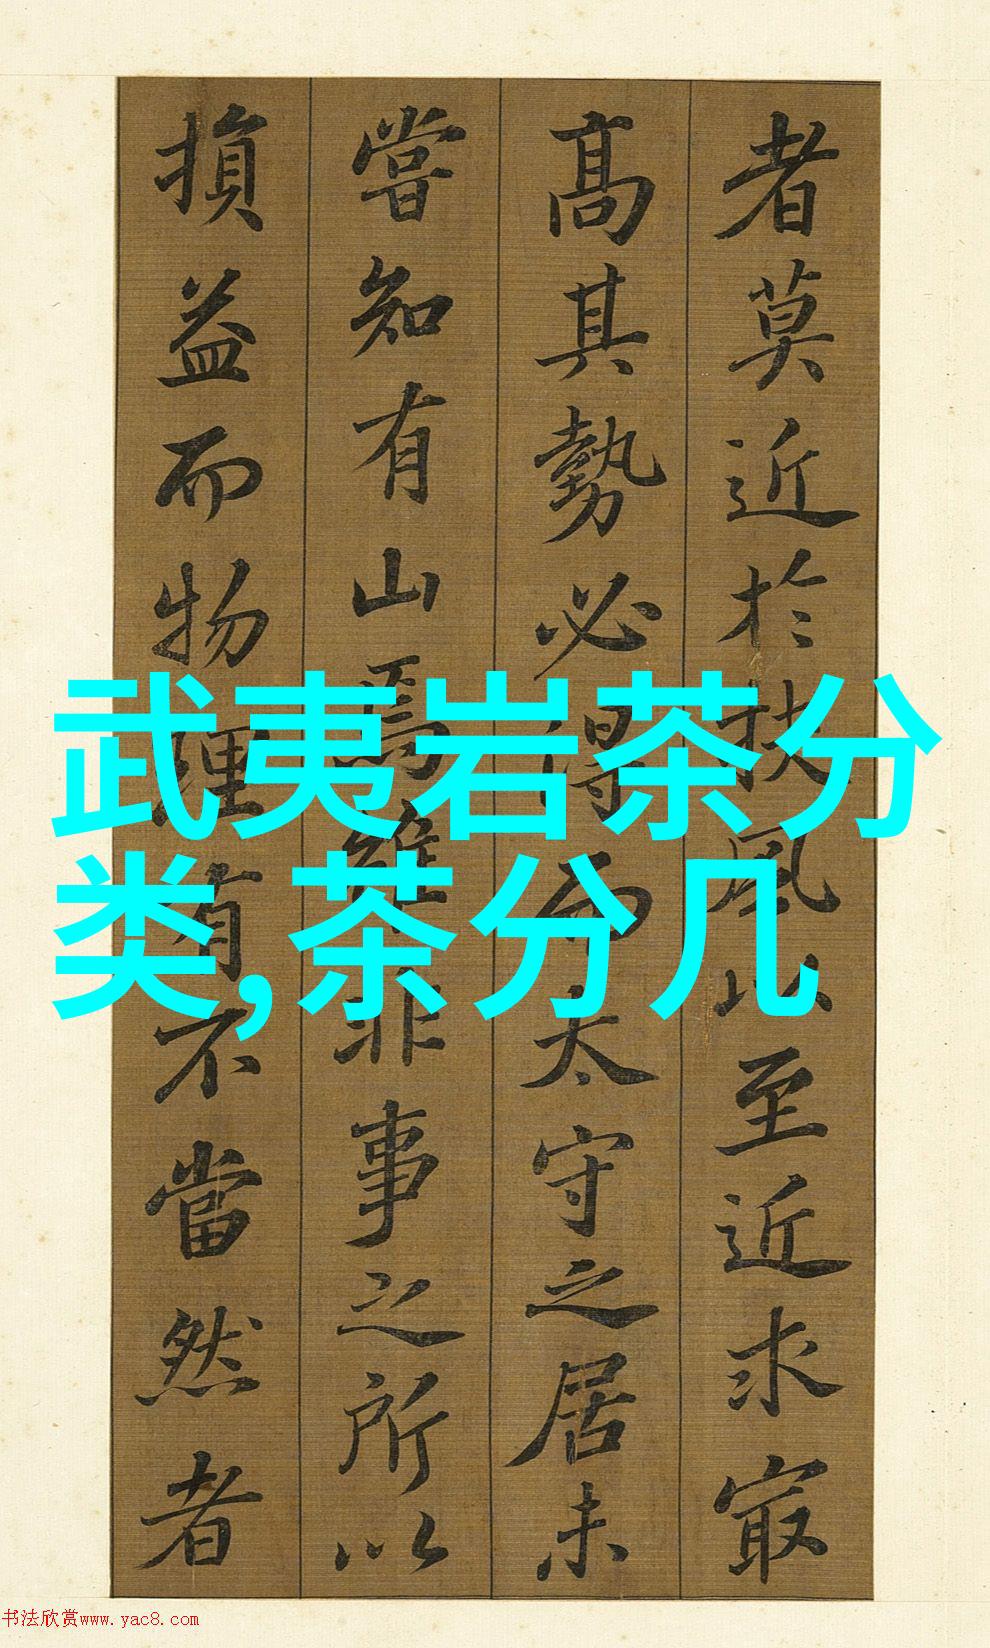 武夷岩茶分
类,茶分几
者莫近於扶風以至近求㝡
髙其勢必得而太守之居未
嘗知有山焉雖非事之所以
損益而物理有不當然者
书法欣赏www.yac8.com